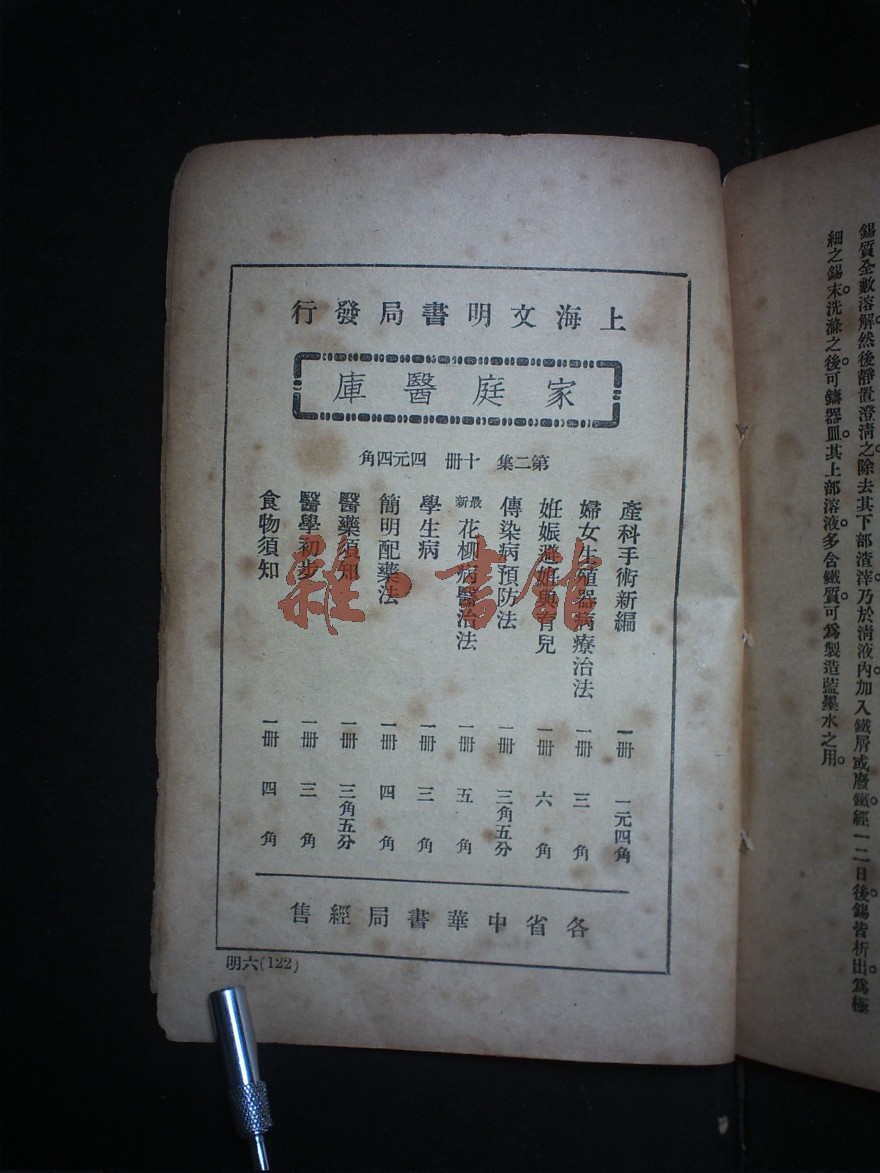 上海文明書局發行
家庭醫庫
第二集 十册 四元四角
產科手術新編 一册 一元四角
婦女生殖器病療治法 一册 三角
妊娠避妊與育兒 一册 六角
傳染病預防法 一册 三角五分
最新花柳病醫治法 一册 五角
學生病 一册 三角
簡明配藥法 一册 四角
醫藥須知 一册 三角五分
醫學初步 一册 三角
食物須知 一册 四角
各省中華書局經售
明六(122)
錫質全數溶解。然後靜置澄清之。除去其下部渣滓。乃於清液內加入鐵屑或廢鐵。經一二日後。錫皆析出。為極
細之錫末。洗滌之後。可鑄器皿。其上部溶液。多含鐵質。可為製造藍墨水之用。
雜·書館